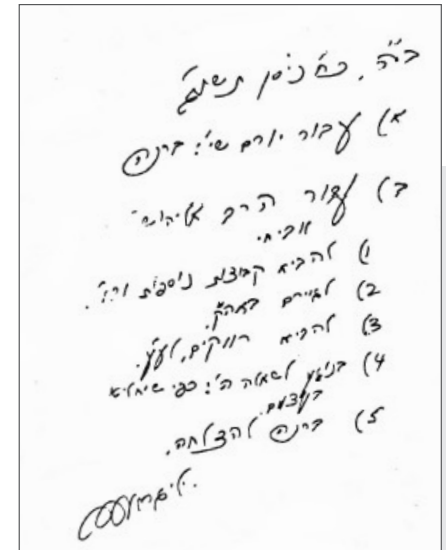 ב"ה, כ"ח ניסן
א) עבור יורם שי': ברכה
ב) עבור הרב אליהו
אביחי
1) להביא קבוצות נוספות וכו'.
2) לגיירם באה"ק.
3) להביא רווקים,
4) בנוגע לשאלה ה': כפי שיחליט
בעצמם.
5) ברכה להצלחה.